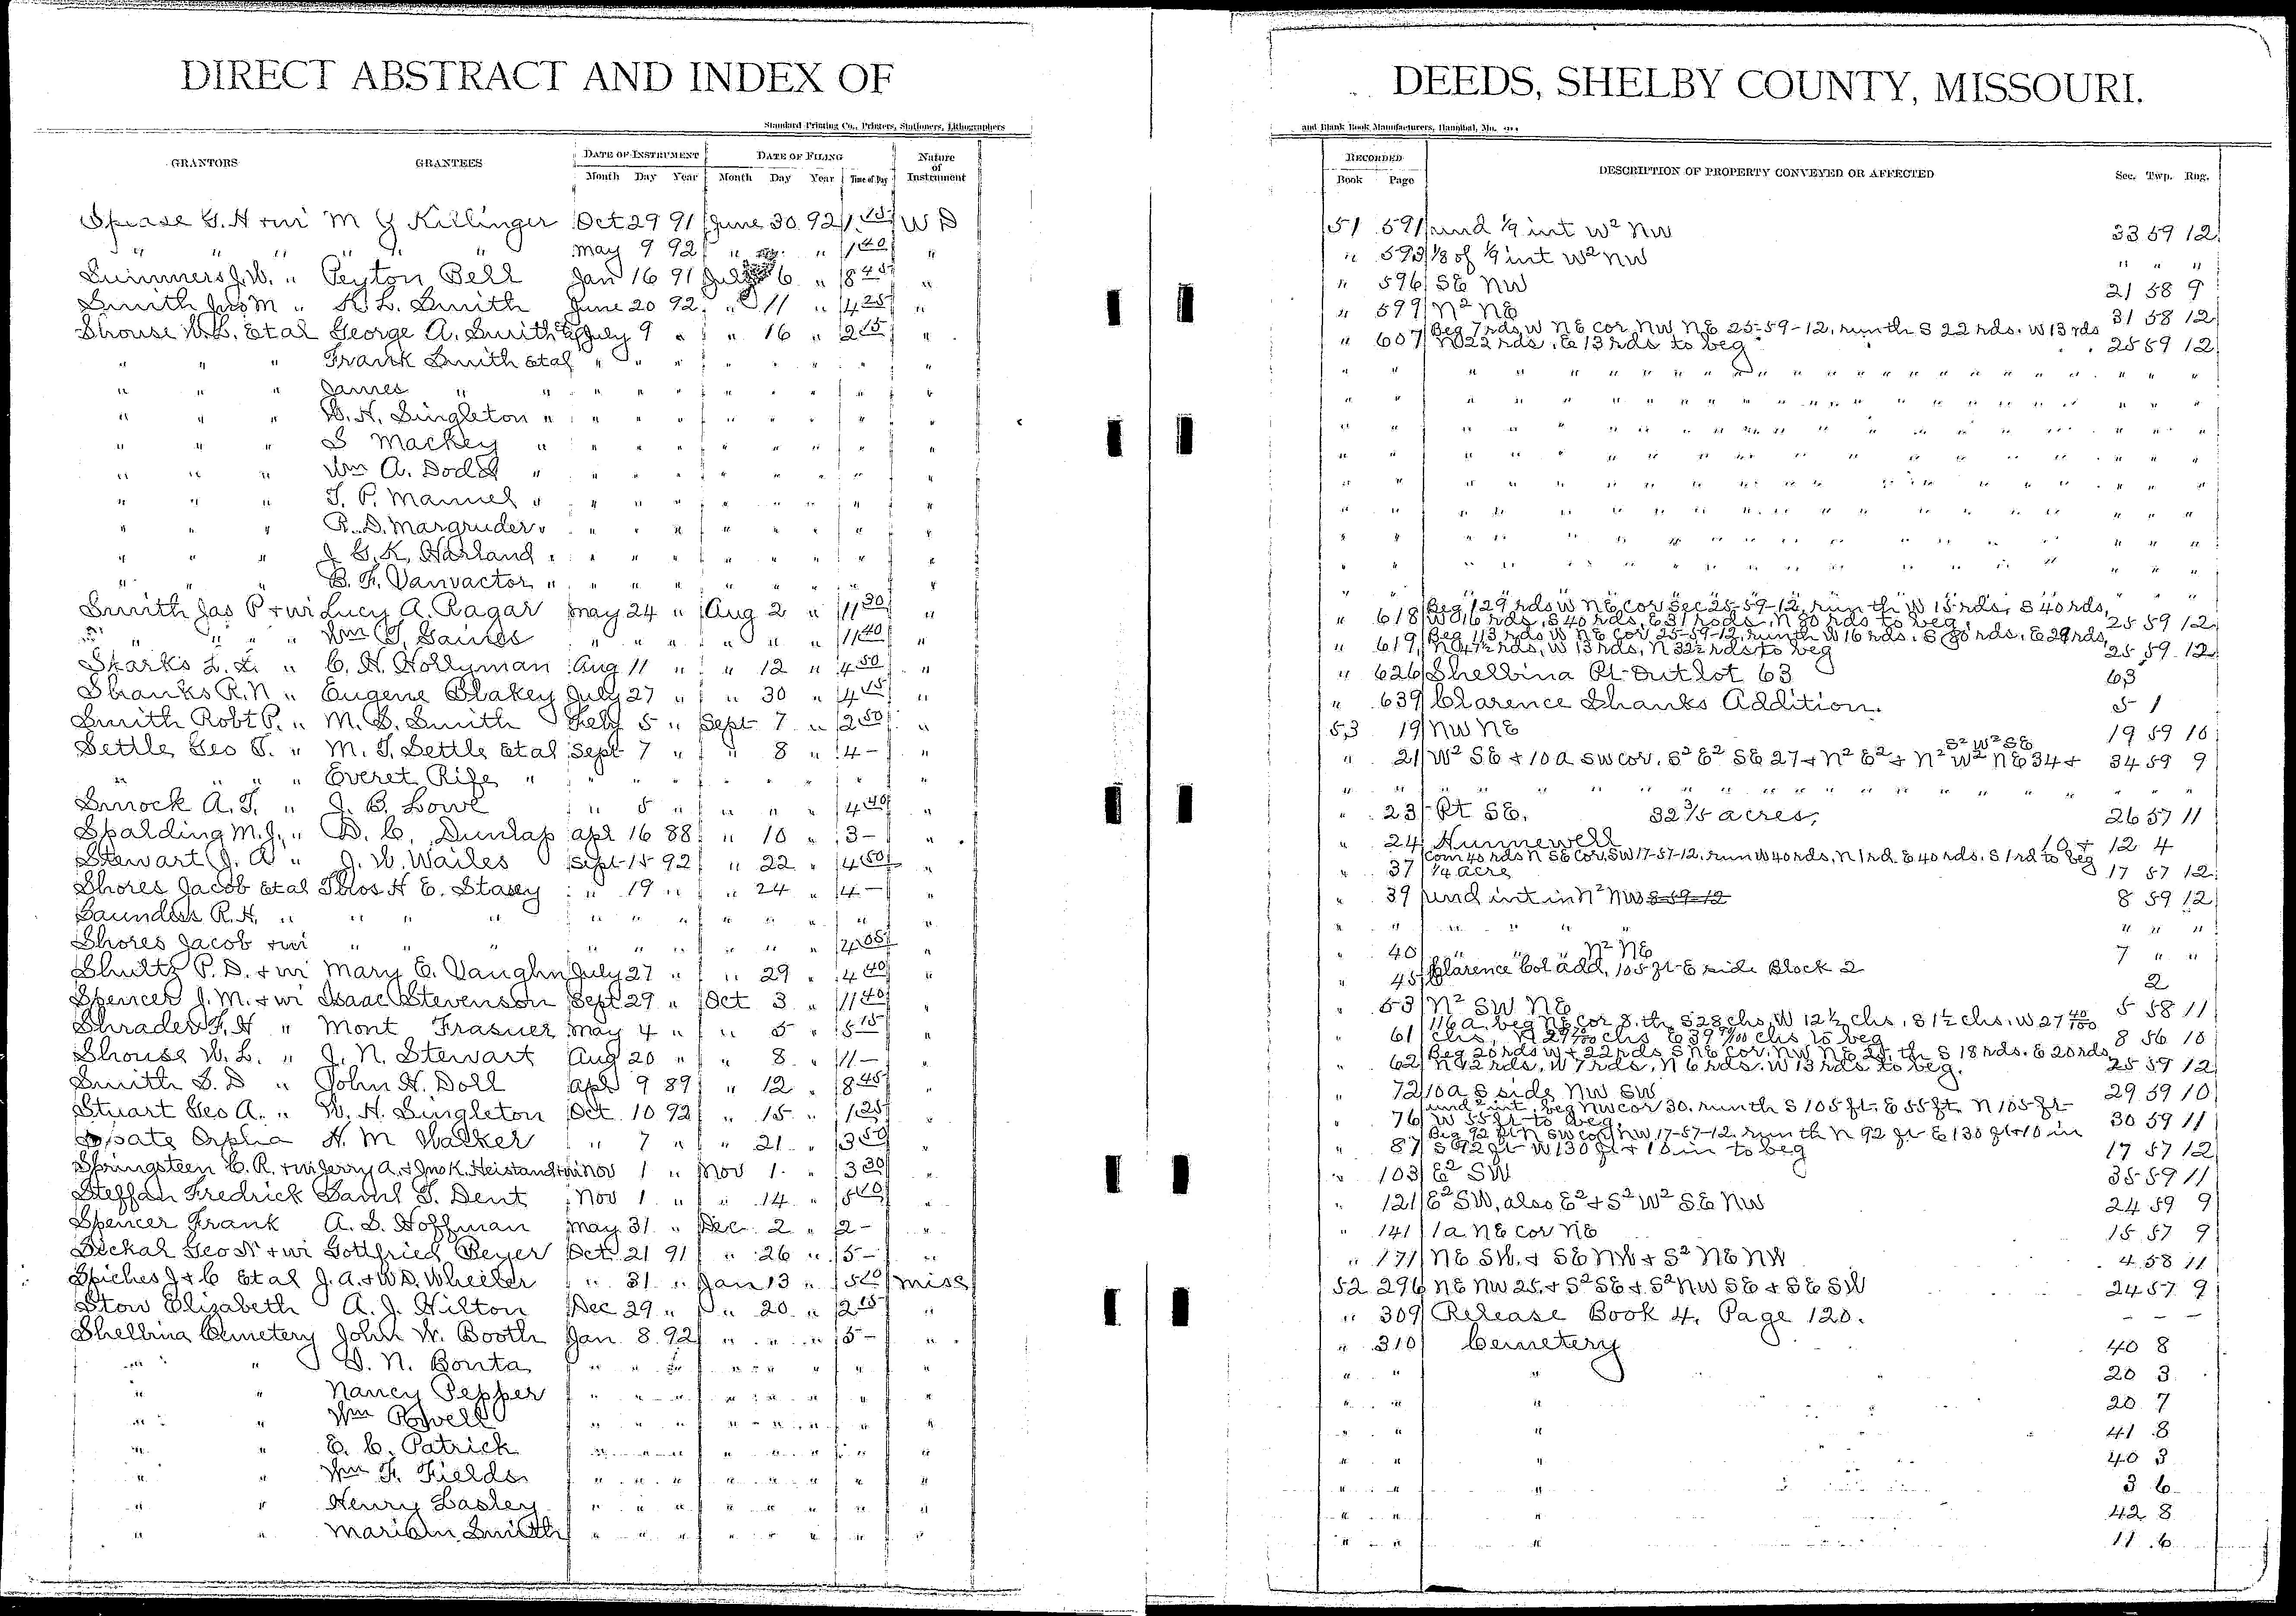 DIRECT ABSTRACT AND INDEX OF
Standard Printing Co., Printers, Stationers, Lithographers
GRANTORS GRANTEES DATE OF INSTRUMENT DATE OF FILING Nature of Instrument
Month Day Year Month Day Year Time of Day
Spease G. H + wi M G Killinger Oct 29 91 June 30 92 1 15 W D
" " " " " " May 9 92 " " " 1 40 "
Summers J. W. " Peyton Bell Jan 16 91 July 6 " 8 45 "
Smith Jno M " K. L. Smith June 20 92 " 11 " 4 25 "
Shouse W. L. Etal George A. Smith Etal July 9 " " 16 " 2 15 "
" " " Frank Smith Etal " " " " " " " "
" " " James " " " " " " " " " "
" " " W. H. Singleton " " " " " " " " "
" " " S Mackey " " " " " " " " "
" " " Wm A. Dodd " " " " " " " " "
" " " T. P. Manuel " " " " " " " " "
" " " R. D. Margruder " " " " " " " " "
" " " J G. K. Harland " " " " " " " " "
" " B. F. Vanvactor " " " " " " " " "
Smith Jas P + wi Lucy A. Ragar May 24 " Aug 2 " 11 30 "
" " " " Wm T. Gaines " " " " " " 11 40 "
Sparks L. L. " C. H. Hollyman Aug 11 " " 12 " 4 50 "
Shanks R. N " Eugene Blakey July 27 " " 30 " 4 15 "
Smith Robt P. " M. S. Smith Feby 5 " Sept 7 " 2 50 "
Settle Geo T. " M. T. Settle Etal Sept 7 " " 8 " 4 - "
" " " " Everet Rife " " " " " " " " "
Smock A. T. " J. B. Lowe " 5 " " " " 4 40 "
Spalding M. J. " D. C. Dunlap Apl 16 88 " 10 " 3 - "
Stewart J. A " J. W. Wailes Sept 15 92 " 22 " 4 50 "
Shores Jacob Etal Thos H E. Stacy " 19 " " 24 " 4 - "
Saunders R. H. " " " " " " " " " " " "
Shores Jacob + wi " " " " " " " " " 4 05 "
Shultz P. D. + wi Mary E. Vaughn July 27 " " 29 " 4 40 "
Spencer J. M. + wi Isaac Stevenson Sept 29 " Oct 3 " 11 40 "
Shrader F. H " Mont Frasuer May 4 " " 5 " 5 15 "
Shouse W. L. " J. N. Stewart Aug 20 " " 8 " 11 - "
Smith S. D " John H. Doll Apl 9 89 " 12 " 8 45 "
Stuart Geo A. " W. H. Singleton Oct 10 92 " 15 " 1 25 "
Orpha H. M Walker " 7 " " 21 " 3 50 "
Springsteen C. R. + wi Jerry A. + Jno K. Heistand + wi Nov 1 " Nov 1 " 3 30 "
Steffan Fredrick Saml T. Dent Nov 1 " " 14 " 5 20 "
Spencer Frank A. S. Hoffman May 31 " Dec 2 " 2 - "
Sickal Geo N + wi Gottfried Beyer Oct 21 91 " 26 " 5 - "
Spiches J + C Etal J. A. + W. D. Wheeler " 31 " Jan 13 " 5 20 Miss
Stow Elizabeth A. J. Hilton Dec 29 " " 20 " 2 15 "
Shelbina Cemetery John W. Booth Jan 8 92 " " " 5 - "
" " W. N. Bonta " " " " " " " "
" " Nancy Pepper " " " " " " " "
" " Wm Powell " " " " " " " "
" " E. C. Patrick " " " " " " " "
" " Wm F. Fields " " " " " " " "
" " Henry Lasley " " " " " " " "
" " Mariam Smith " " " " " " " "
DEEDS, SHELBY COUNTY, MISSOURI.
and Blank Book Manufacturers, Hannibal, Mo.
RECORDED DESCRIPTION OF PROPERTY CONVEYED OR AFFECTED Sec. Twp. Rng.
Book Page
51 591 und 1/9 int W² NW 33 59 12
" 593 1/8 of 1/9 int W² NW " " "
" 596 SE NW 21 58 9
" 599 N² NE 31 58 12
" 607 Beg 7 rds W NE cor NW NE 25-59-12, run th S 22 rds. W 13 rds
N 22 rds, E 13 rds to beg 25 59 12
" " " " " " " " " " " " " " " " " "
" " " " " " " " " " " " " " " " " "
" " " " " " " " " " " " " " " " " "
" " " " " " " " " " " " " " " " " "
" " " " " " " " " " " " " " " " " "
" " " " " " " " " " " " " " " " " "
" " " " " " " " " " " " " " " " " "
" " " " " " " " " " " " " " " " " "
" " " " " " " " "
" 618 Beg 129 rds W NE cor Sec 25-59-12, run th W 15 rds, S 40 rds,
W 16 rds, S 40 rds, E 31 rods, N 80 rds to beg. 25 59 12
" 619 Beg 113 rds W NE cor 25-59-12, run th W 16 rds. S 80 rds, E 29 rds,
N 47½ rds, W 13 rds, N 32½ rds to beg 25 59 12
" 626 Shelbina Pt Out lot 63 63
" 639 Clarence Shanks Addition. 5 1
53 19 NW NE 19 59 10
S² W² SE
" 21 W² SE + 10 a SW cor. S² E² SE 27 + N² E² + N² W² NE 34 + 34 59 9
" " " " " " " " " " " " " " " "
" 23 Pt SE. 32 3/5 acres, 26 57 11
" 24 Hunnewell 10 + 12 4
" 37 Com 40 rds N SE cor, SW 17-57-12, run W 40 rds, N 1 rd E 40 rds. S 1 rd to beg
1/4 acre 17 57 12
" 39 und int in N² NW 8-59-12 8 59 12
" " " " " " " " "
" 40 " " N² NE 7 " "
" 45 Clarence Col add, 105 ft E side Block 2 2
" 53 N² SW NE 5 58 11
" 61 116 a, beg NE cor 8, th S 28 chs, W 12½ chs, S 1½ chs, W 27 40/100
8 56 10
" 62 Beg 20 rds W + 22 rds S NE cor. NW NE 25, th S 18 rds. E 20 rds
N 12 rds, W 7 rds, N 6 rds. W 13 rds to beg. 25 59 12
" 72 10 a S side NW SW 29 59 10
" 76 und ½ int, beg NW cor 30. run th S 105 ft. E 55 ft. N 105 ft
W 55 ft to beg. 30 59 11
" 87 Beg 92 ft N SW cor, NW 17-57-12, run th N 92 ft E 130 ft + 10 in
S 92 ft W 130 ft + 10 in to beg 17 57 12
" 103 E² SW 35 59 11
" 121 E² SW, also E² + S² W² SE NW 24 59 9
" 141 1 a NE cor NE 15 57 9
" 171 NE SW. + SE NW + S² NE NW 4 58 11
52 296 NE NW 25, + S² SE + S² NW SE + SE SW 24 57 9
" 309 Release Book 4. Page 120. - - -
" 310 Cemetery 40 8
" " " 20 3
" " " 20 7
" " " 41 8
" " " 40 3
" " " 3 6
" " " 42 8
" " " 11 6